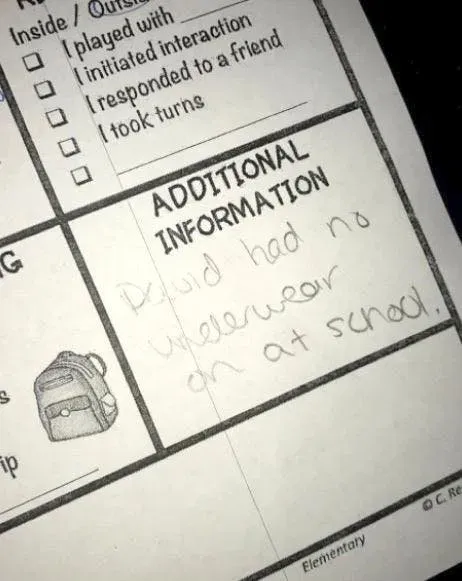 Inside / Outside
I played with
I initiated interaction
I responded to a friend
I took turns
ADDITIONAL
INFORMATION
David had no
underwear
on at school.
G
s
ip
Elementary
© C. Re